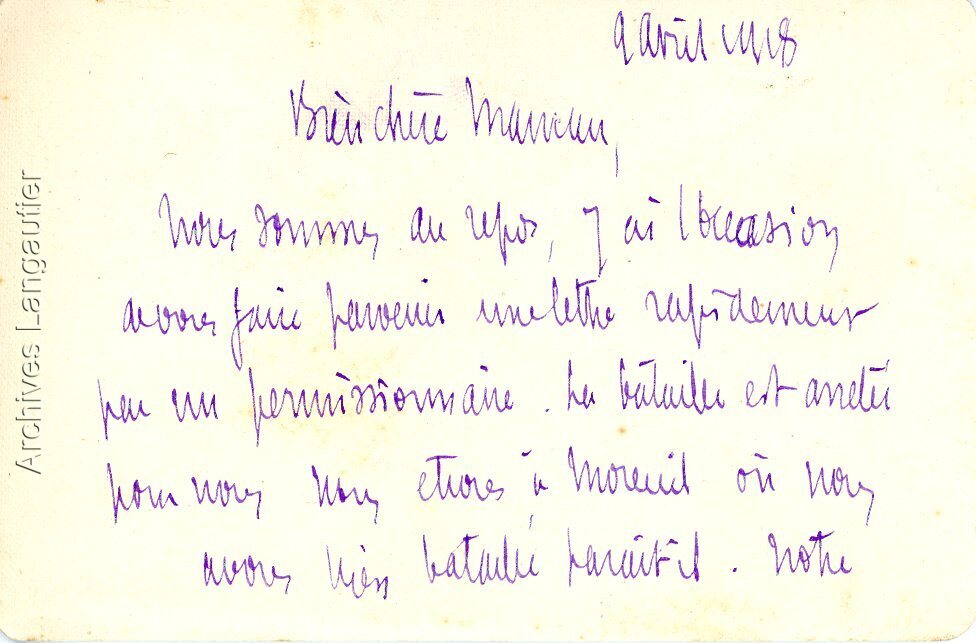 9 avril 1918
Bien chère Maman,
Nous sommes au repos, j'ai l'occasion
de vous faire parvenir une lettre rapidement
par un permissionnaire. La bataille est arrêtée
pour nous nous étions à Moreuil où nous
avons bien bataillé paraît-il. Notre
Archives Langautier